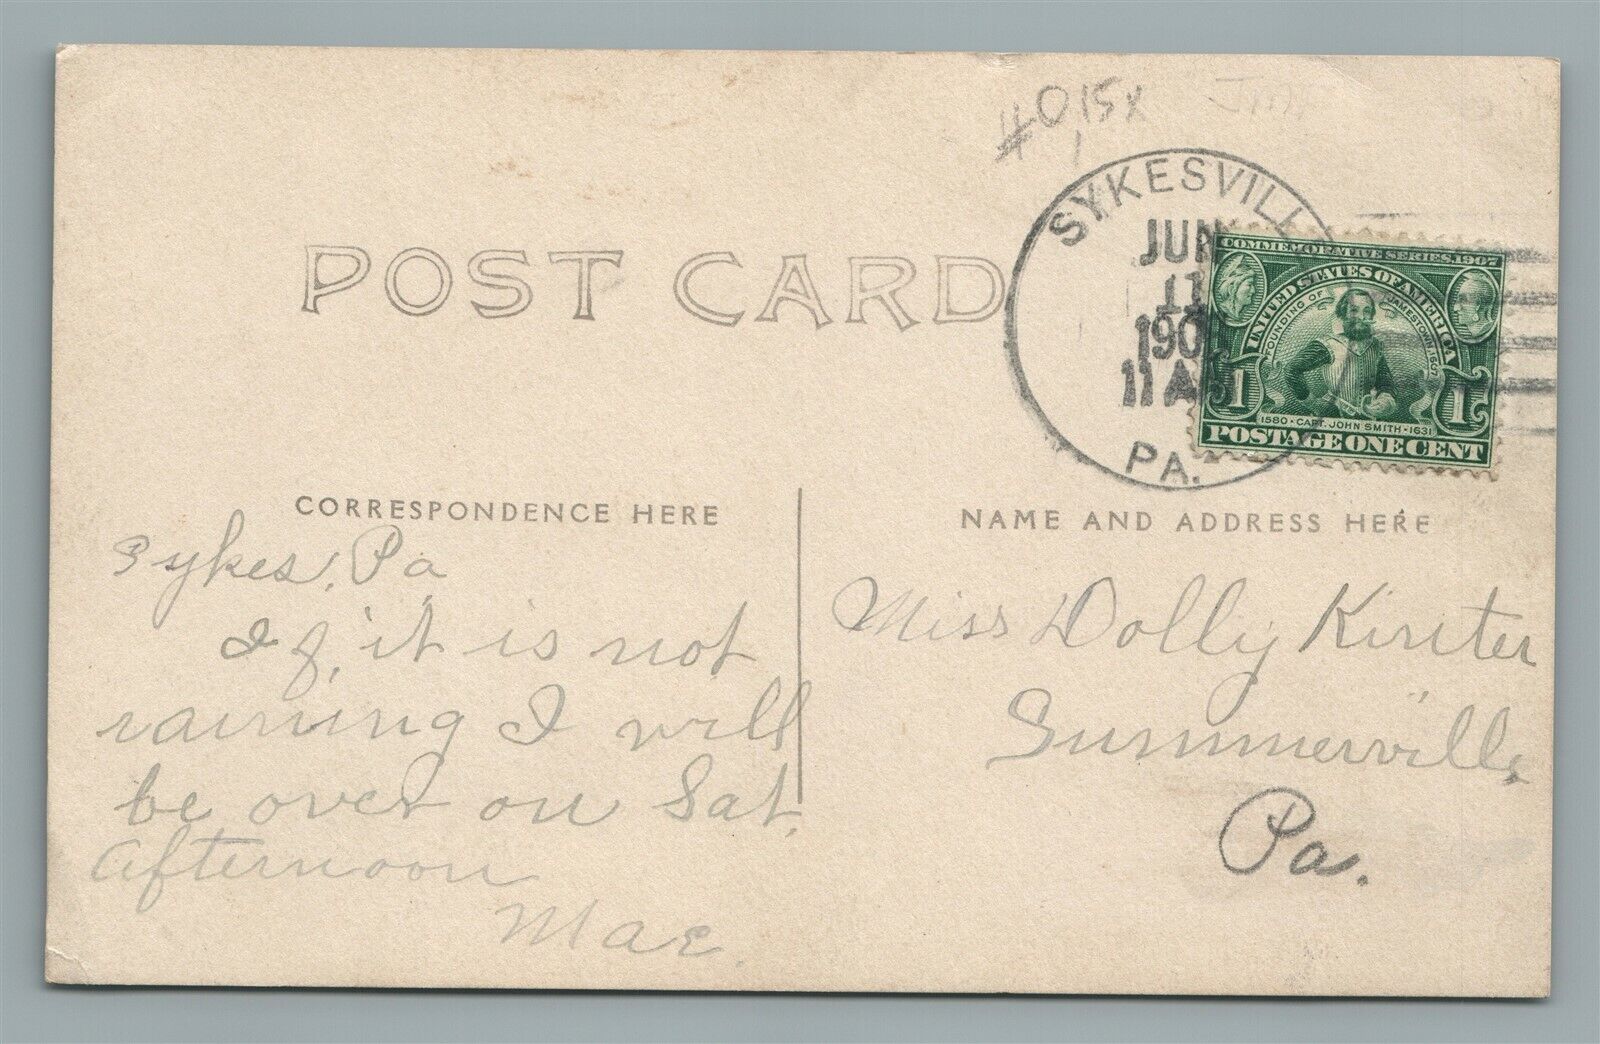 #015x
POST CARD
SYKESVILL
JUN
11
190
11 AM
PA.
COMMEMORATIVE SERIES, 1907
UNITED STATES OF AMERICA
FOUNDING OF JAMESTOWN 1607
1 1
1580 • CAPT. JOHN SMITH • 1631
POSTAGE ONE CENT
CORRESPONDENCE HERE
Sykes, Pa
If, it is not
raining I will
be over on Sat.
afternoon
Mae.
NAME AND ADDRESS HERE
Miss Dolly Kinter
Summerville,
Pa.